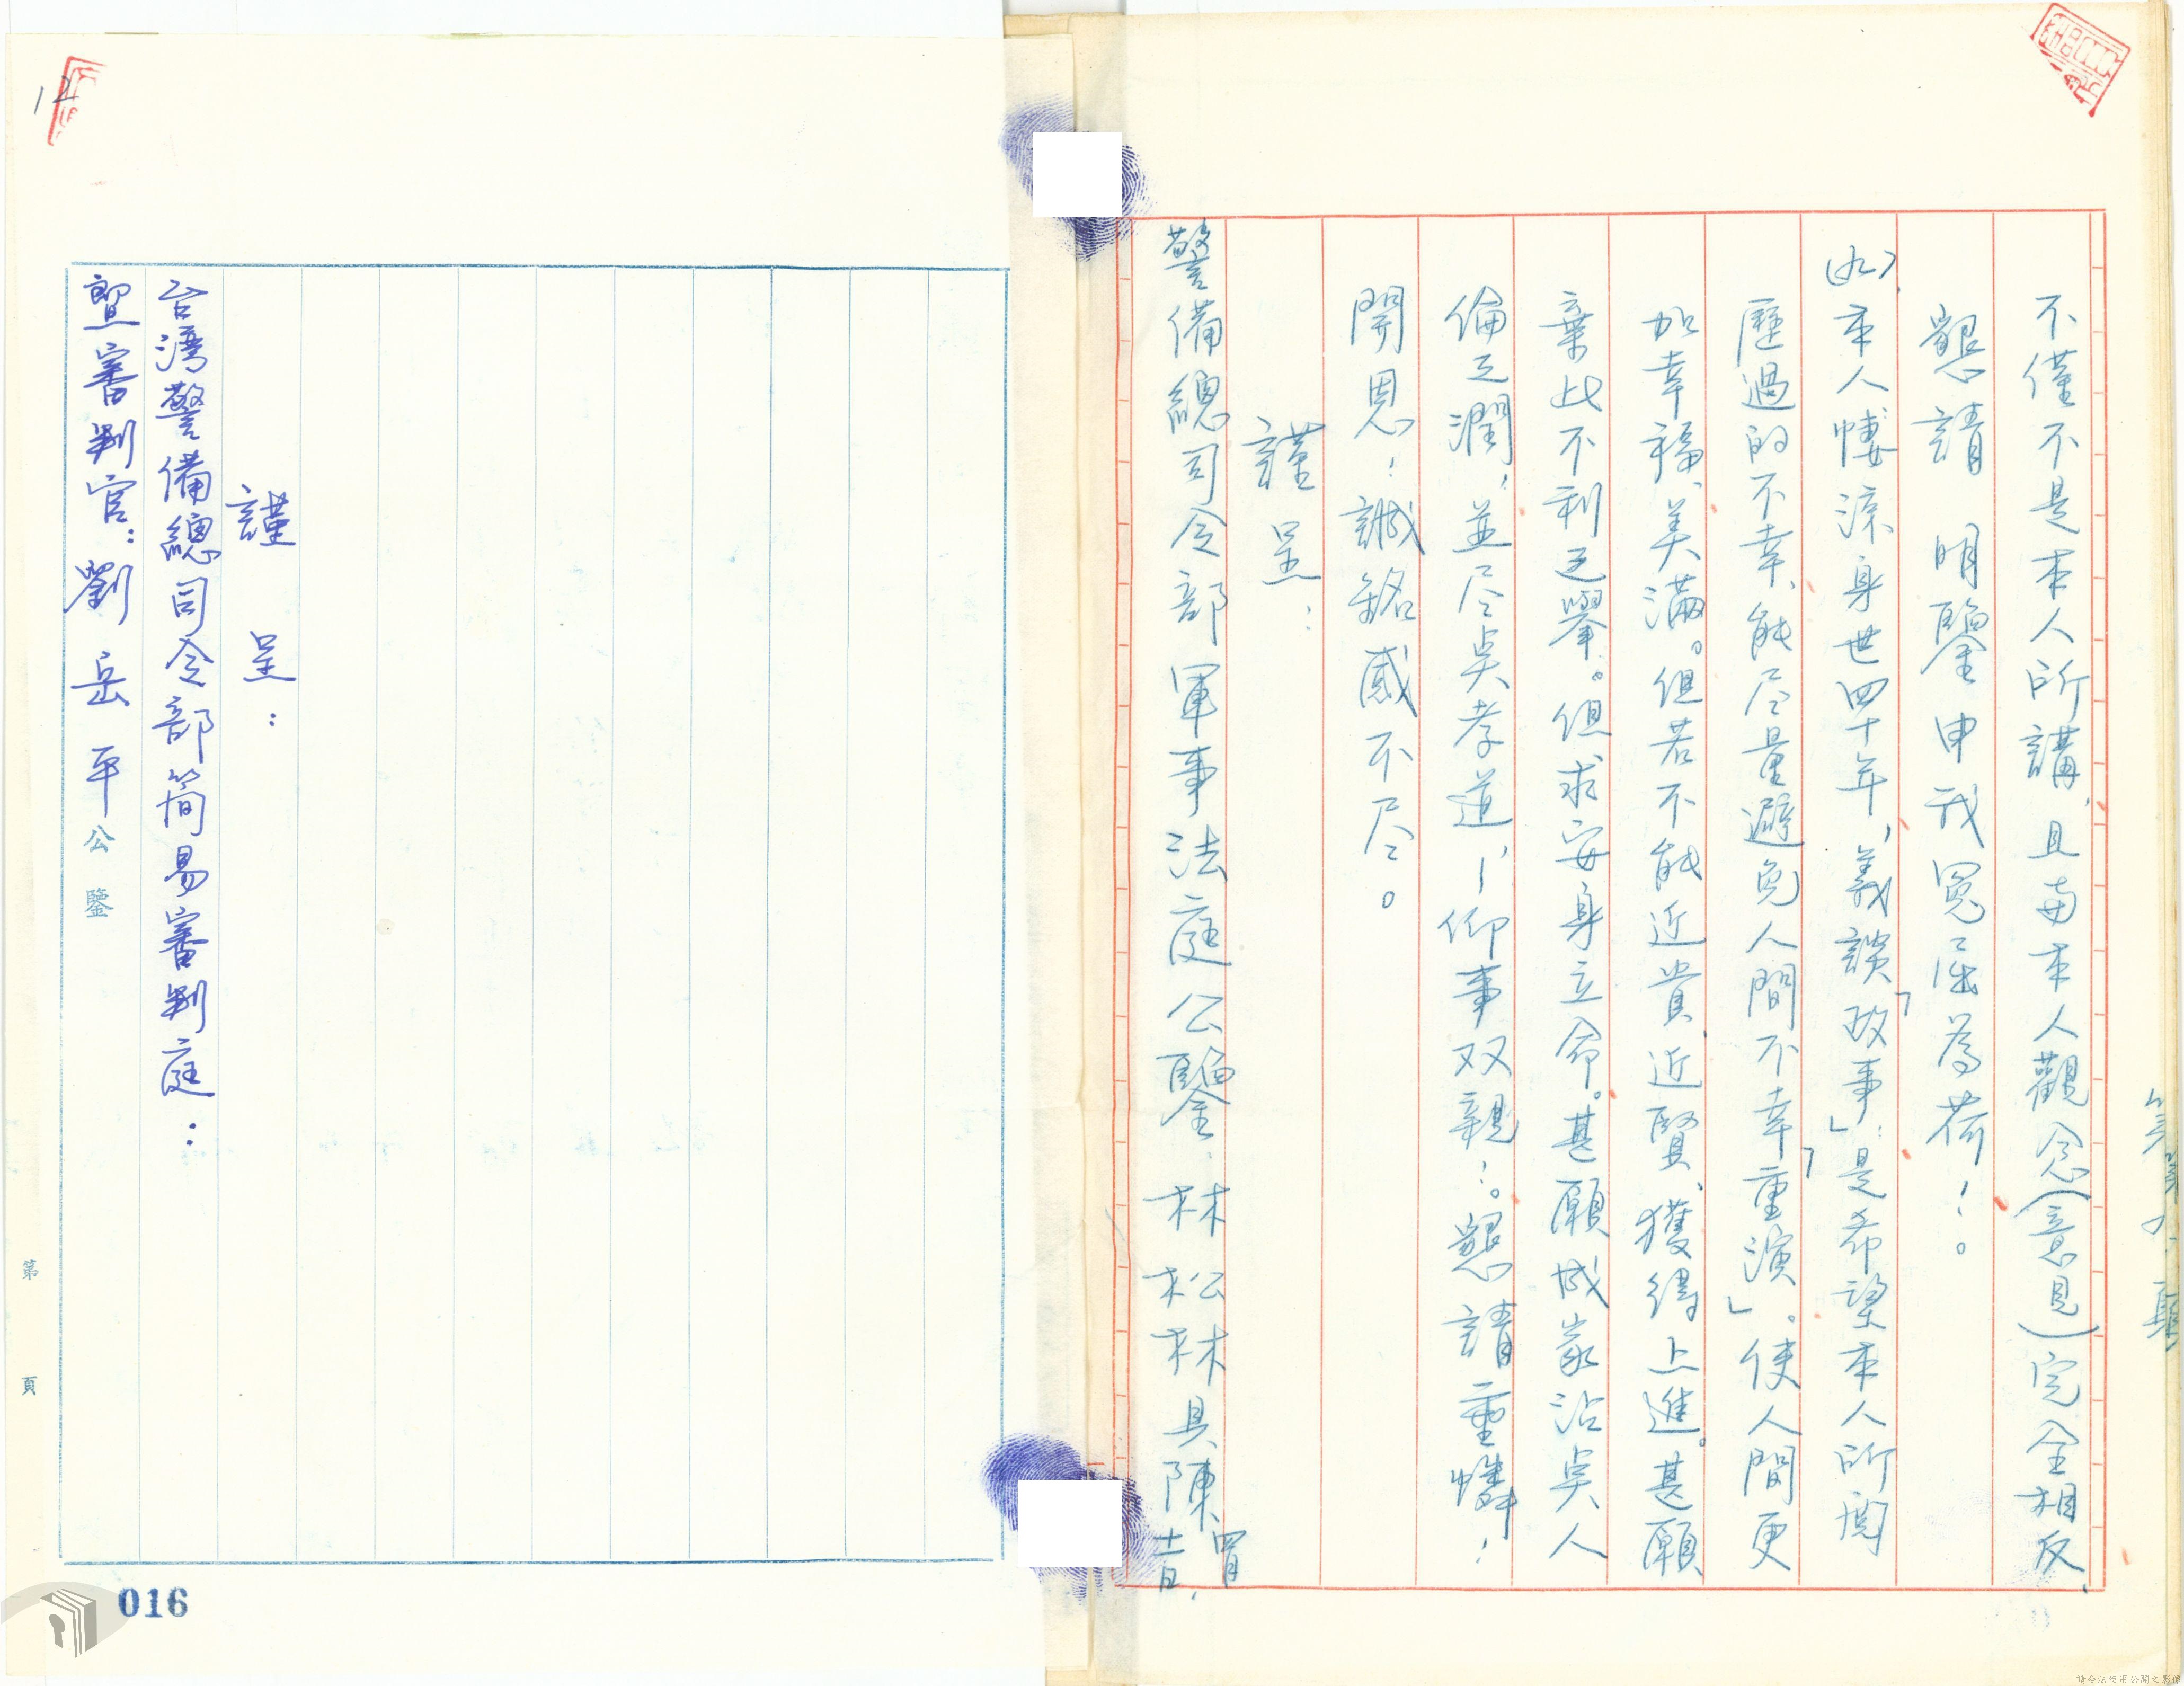 不僅不是本人所講，且与本人觀念(意見)完全相反，
懇請 明鑒申我冤屈為荷！。
(九)、本人悽涼身世四十年，義談「政事」：是希望本人所閱
歷過的不幸、能尽量避免人間不幸「重演」。使人間更
加幸福、美滿。但若不能近貴、近賢、獲得上進。甚願
棄此不利之舉。但求安身立命。甚願成家沾吳人
倫之潤，並尽吳孝道，—仰事双親！。懇請垂憐！
開恩！誠銘感不尽。
謹呈：
警備總司令部軍事法庭公鑒：林松林具陳、
十一月 日，
第六張
謹 呈：
台灣警備總司令部簡易審判庭：
暨審判官：劉岳平公鑒
第 頁
016
請合法使用公開之影像